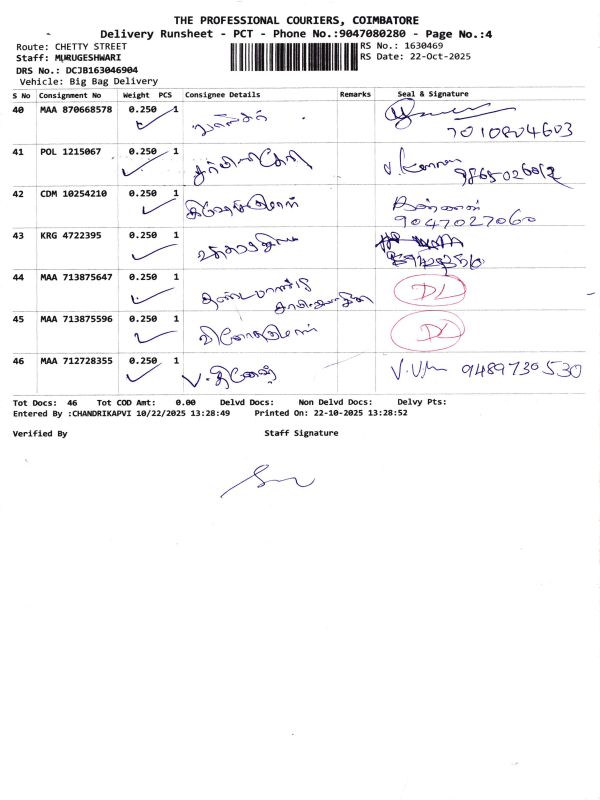 THE PROFESSIONAL COURIERS, COIMBATORE
Delivery Runsheet - PCT - Phone No.:9047080280 - Page No.:4
Route: CHETTY STREET
RS No.: 1630469
Staff: MURUGESHWARI
RS Date: 22-Oct-2025
DRS No.: DCJB163046904
Vehicle: Big Bag Delivery
S No Consignment No Weight PCS Consignee Details Remarks Seal & Signature
40 MAA 870668578 0.250 1
7010804603
41 POL 1215067 0.250 1
9865026012
42 CDM 10254210 0.250 1
9047027060
43 KRG 4722395 0.250 1
44 MAA 713875647 0.250 1 DL
45 MAA 713875596 0.250 1 வினோத்குமார் DL
46 MAA 712728355 0.250 1 V. தினேஷ் 9489730530
Tot Docs: 46 Tot COD Amt: 0.00 Delvd Docs: Non Delvd Docs: Delvy Pts:
Entered By :CHANDRIKAPVI 10/22/2025 13:28:49 Printed On: 22-10-2025 13:28:52
Verified By Staff Signature